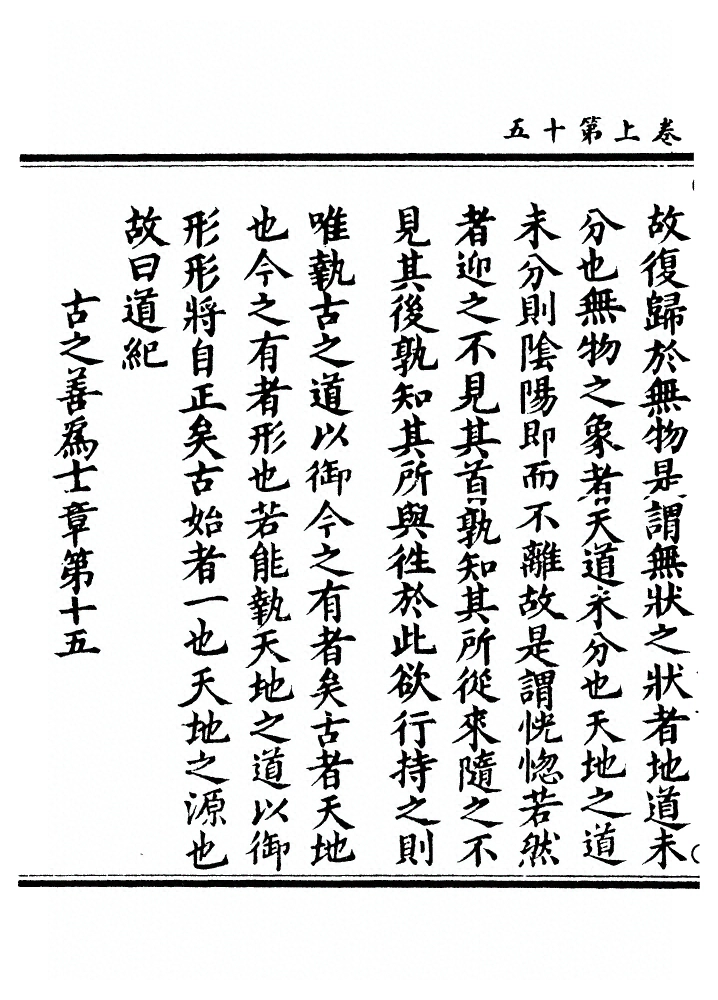 卷上第十五
故復歸於無物是謂無狀之狀者地道未
分也無物之象者天道未分也天地之道
未分則陰陽即而不離故是謂恍惚若然
者迎之不見其首孰知其所從來隨之不
見其後孰知其所與徃於此欲行持之則
唯執古之道以御今之有者矣古者天地
也今之有者形也若能執天地之道以御
形形將自正矣古始者一也天地之源也
故曰道紀
古之善爲士章第十五